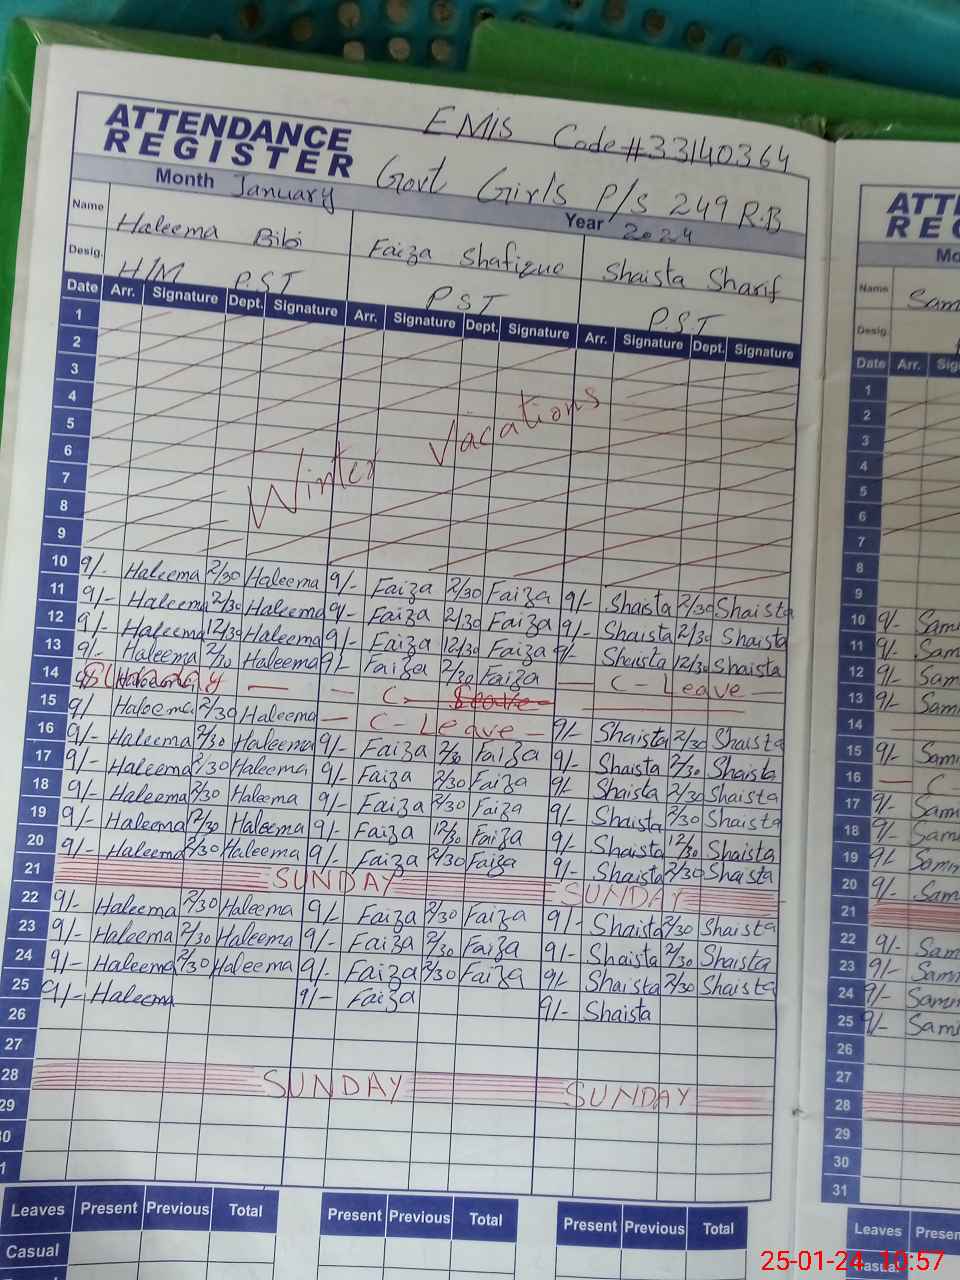 EMIS Code#33140364
ATTENDANCE
REGISTER
Govt Girls P/S 249 R.B
Month January Year 2024
Name Haleema Bibi Faiza Shafique Shaista Sharif
Desig. H/M P.S.T P.S.T P.S.T
Date Arr. Signature Dept. Signature Arr. Signature Dept. Signature Arr. Signature Dept. Signature
1
2
3
4
5
6
7
8
9
Winter Vacations
10 9/- Haleema 2/30 Haleema 9/- Faiza 2/30 Faiza 9/- Shaista 2/30 Shaista
11 9/- Haleema 2/30 Haleema 9/- Faiza 2/30 Faiza 9/- Shaista 2/30 Shaista
12 9/- Haleema 12/30 Haleema 9/- Faiza 12/30 Faiza 9/- Shaista 12/30 Shaista
13 9/- Haleema 2/30 Haleema 9/- Faiza 2/30 Faiza C - Leave
14 Sunday C - Leave
15 9/- Haleema 2/30 Haleema C - Leave 9/- Shaista 2/30 Shaista
16 9/- Haleema 2/30 Haleema 9/- Faiza 2/30 Faiza 9/- Shaista 2/30 Shaista
17 9/- Haleema 2/30 Haleema 9/- Faiza 2/30 Faiza 9/- Shaista 2/30 Shaista
18 9/- Haleema 2/30 Haleema 9/- Faiza 2/30 Faiza 9/- Shaista 2/30 Shaista
19 9/- Haleema 12/30 Haleema 9/- Faiza 12/30 Faiza 9/- Shaista 12/30 Shaista
20 9/- Haleema 2/30 Haleema 9/- Faiza 2/30 Faiza 9/- Shaista 2/30 Shaista
21 SUNDAY SUNDAY
22 9/- Haleema 2/30 Haleema 9/- Faiza 2/30 Faiza 9/- Shaista 2/30 Shaista
23 9/- Haleema 2/30 Haleema 9/- Faiza 2/30 Faiza 9/- Shaista 2/30 Shaista
24 9/- Haleema 2/30 Haleema 9/- Faiza 2/30 Faiza 9/- Shaista 2/30 Shaista
25 9/- Haleema 9/- Faiza 9/- Shaista
26
27
28 SUNDAY SUNDAY
29
Leaves Present Previous Total Present Previous Total Present Previous Total
Casual
Name
Desig.
Date Arr.
1
2
3
4
5
6
7
8
9
10 9/-
11 9/-
12 9/-
13 9/-
14
15 9/-
16 C -
17 9/-
18 9/-
19 9/-
20 9/-
21
22 9/-
23 9/-
24 9/-
25 9/-
26
27
28
29
30
31
Leaves
Casual
25-01-24 10:57